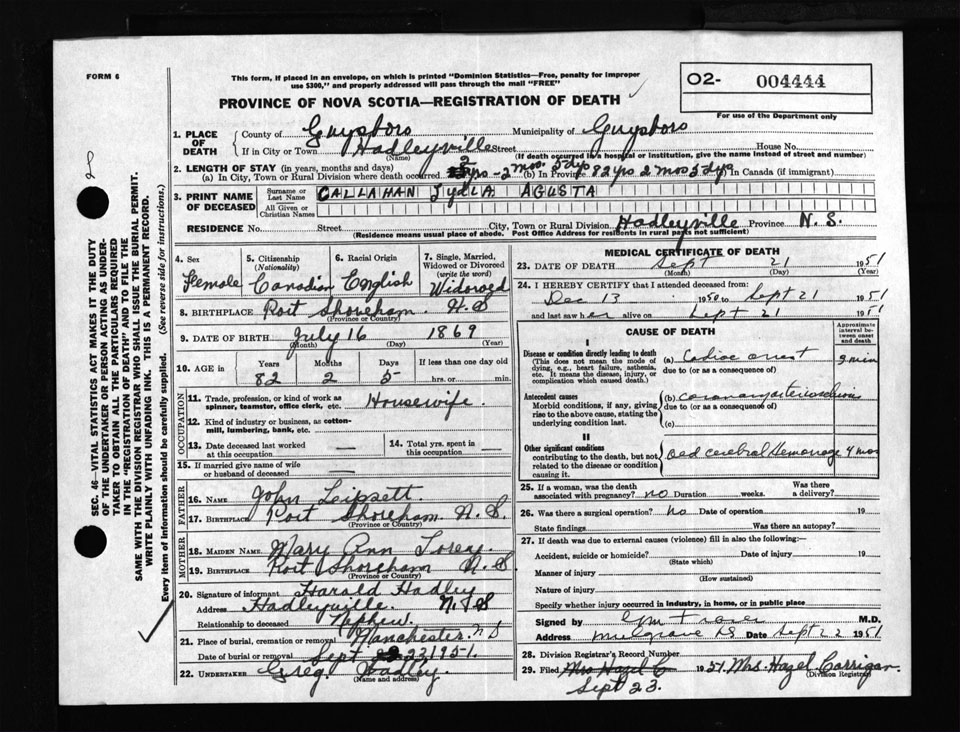 FORM 6
This form, if placed in an envelope, on which is printed "Dominion Statistics—Free, penalty for improper
use $300," and properly addressed will pass through the mail "FREE"
O2- 004444
For use of the Department only
PROVINCE OF NOVA SCOTIA—REGISTRATION OF DEATH
1. PLACE OF DEATH
County of Guysboro Municipality of Guysboro
If in City or Town Hadleyville Street House No.
(Name) (If death occurred in a hospital or institution, give the name instead of street and number)
2. LENGTH OF STAY (in years, months and days)
(a) In City, Town or Rural Division where death occurred yrs - 2 mos 5 dys (b) In Province 82 yrs 2 mos 5 dys (c) In Canada (if immigrant)
3. PRINT NAME OF DECEASED
Surname or Last Name CALLAHAN LYDIA AGUSTA
All Given or Christian Names
RESIDENCE No. Street City, Town or Rural Division Hadleyville Province N. S.
(Residence means usual place of abode. Post Office Address for residents in rural parts not sufficient)
4. Sex Female
5. Citizenship (Nationality) Canadian
6. Racial Origin English
7. Single, Married, Widowed or Divorced (write the word) Widowed
8. BIRTHPLACE Port Shoreham. N. S
(Province or Country)
9. DATE OF BIRTH July 16 1869
(Month) (Day) (Year)
10. AGE Years 82 Months 2 Days 5 If less than one day old
hrs. or min.
OCCUPATION
11. Trade, profession, or kind of work as spinner, teamster, office clerk, etc. Housewife.
12. Kind of industry or business, as cotton-mill, lumbering, bank, etc.
13. Date deceased last worked at this occupation
14. Total yrs. spent in this occupation
15. If married give name of wife or husband of deceased
FATHER
16. NAME John Leipsett.
17. BIRTHPLACE Port Shoreham. N. S.
(Province or Country)
MOTHER
18. MAIDEN NAME Mary Ann Torey.
19. BIRTHPLACE Port Shoreham N. S.
(Province or Country)
20. Signature of informant Harald Hadley
Address Hadleyville.
Relationship to deceased Nephew.
21. Place of burial, cremation or removal Manchester.
Date of burial or removal Sept 23 1951.
22. UNDERTAKER Greg Hadley.
(Name and address)
MEDICAL CERTIFICATE OF DEATH
23. DATE OF DEATH Sept 21 1951
(Month) (Day) (Year)
24. I HEREBY CERTIFY that I attended deceased from:
Dec 13 1950 to Sept 21 1951
and last saw her alive on Sept 21 1951
CAUSE OF DEATH
Approximate interval between onset and death
I
Disease or condition directly leading to death
(This does not mean the mode of dying, e.g., heart failure, asthenia, etc. It means the disease, injury, or complication which caused death.)
(a) Cardiac arrest 2 min
due to (or as a consequence of)
Antecedent causes
Morbid conditions, if any, giving rise to the above cause, stating the underlying condition last.
(b) coronary arteriosclerosis
due to (or as a consequence of)
(c)
II
Other significant conditions
contributing to the death, but not related to the disease or condition causing it.
old cerebral Hemorrage 4 mos
25. If a woman, was the death associated with pregnancy? no Duration weeks. Was there a delivery?
26. Was there a surgical operation? no Date of operation 19
State findings Was there an autopsy?
27. If death was due to external causes (violence) fill in also the following:—
Accident, suicide or homicide? Date of injury 19
(State which)
Manner of injury
(How sustained)
Nature of injury
Specify whether injury occurred in industry, in home, or in public place
Signed by M.D.
Address Mulgrave NS Date Sept 22 1951
28. Division Registrar's Record Number
29. Filed Mrs Hazel C 1951. Mrs. Hazel Carrigan.
Sept 23. (Division Registrar)
SEC. 46—VITAL STATISTICS ACT MAKES IT THE DUTY
OF THE UNDERTAKER OR PERSON ACTING AS UNDER-
TAKER TO OBTAIN ALL THE PARTICULARS REQUIRED
IN THE "REGISTRATION OF DEATH" AND TO FILE THE
SAME WITH THE DIVISION REGISTRAR WHO SHALL ISSUE THE BURIAL PERMIT.
WRITE PLAINLY WITH UNFADING INK. THIS IS A PERMANENT RECORD.
Every item of information should be carefully supplied. (See reverse side for instructions.)